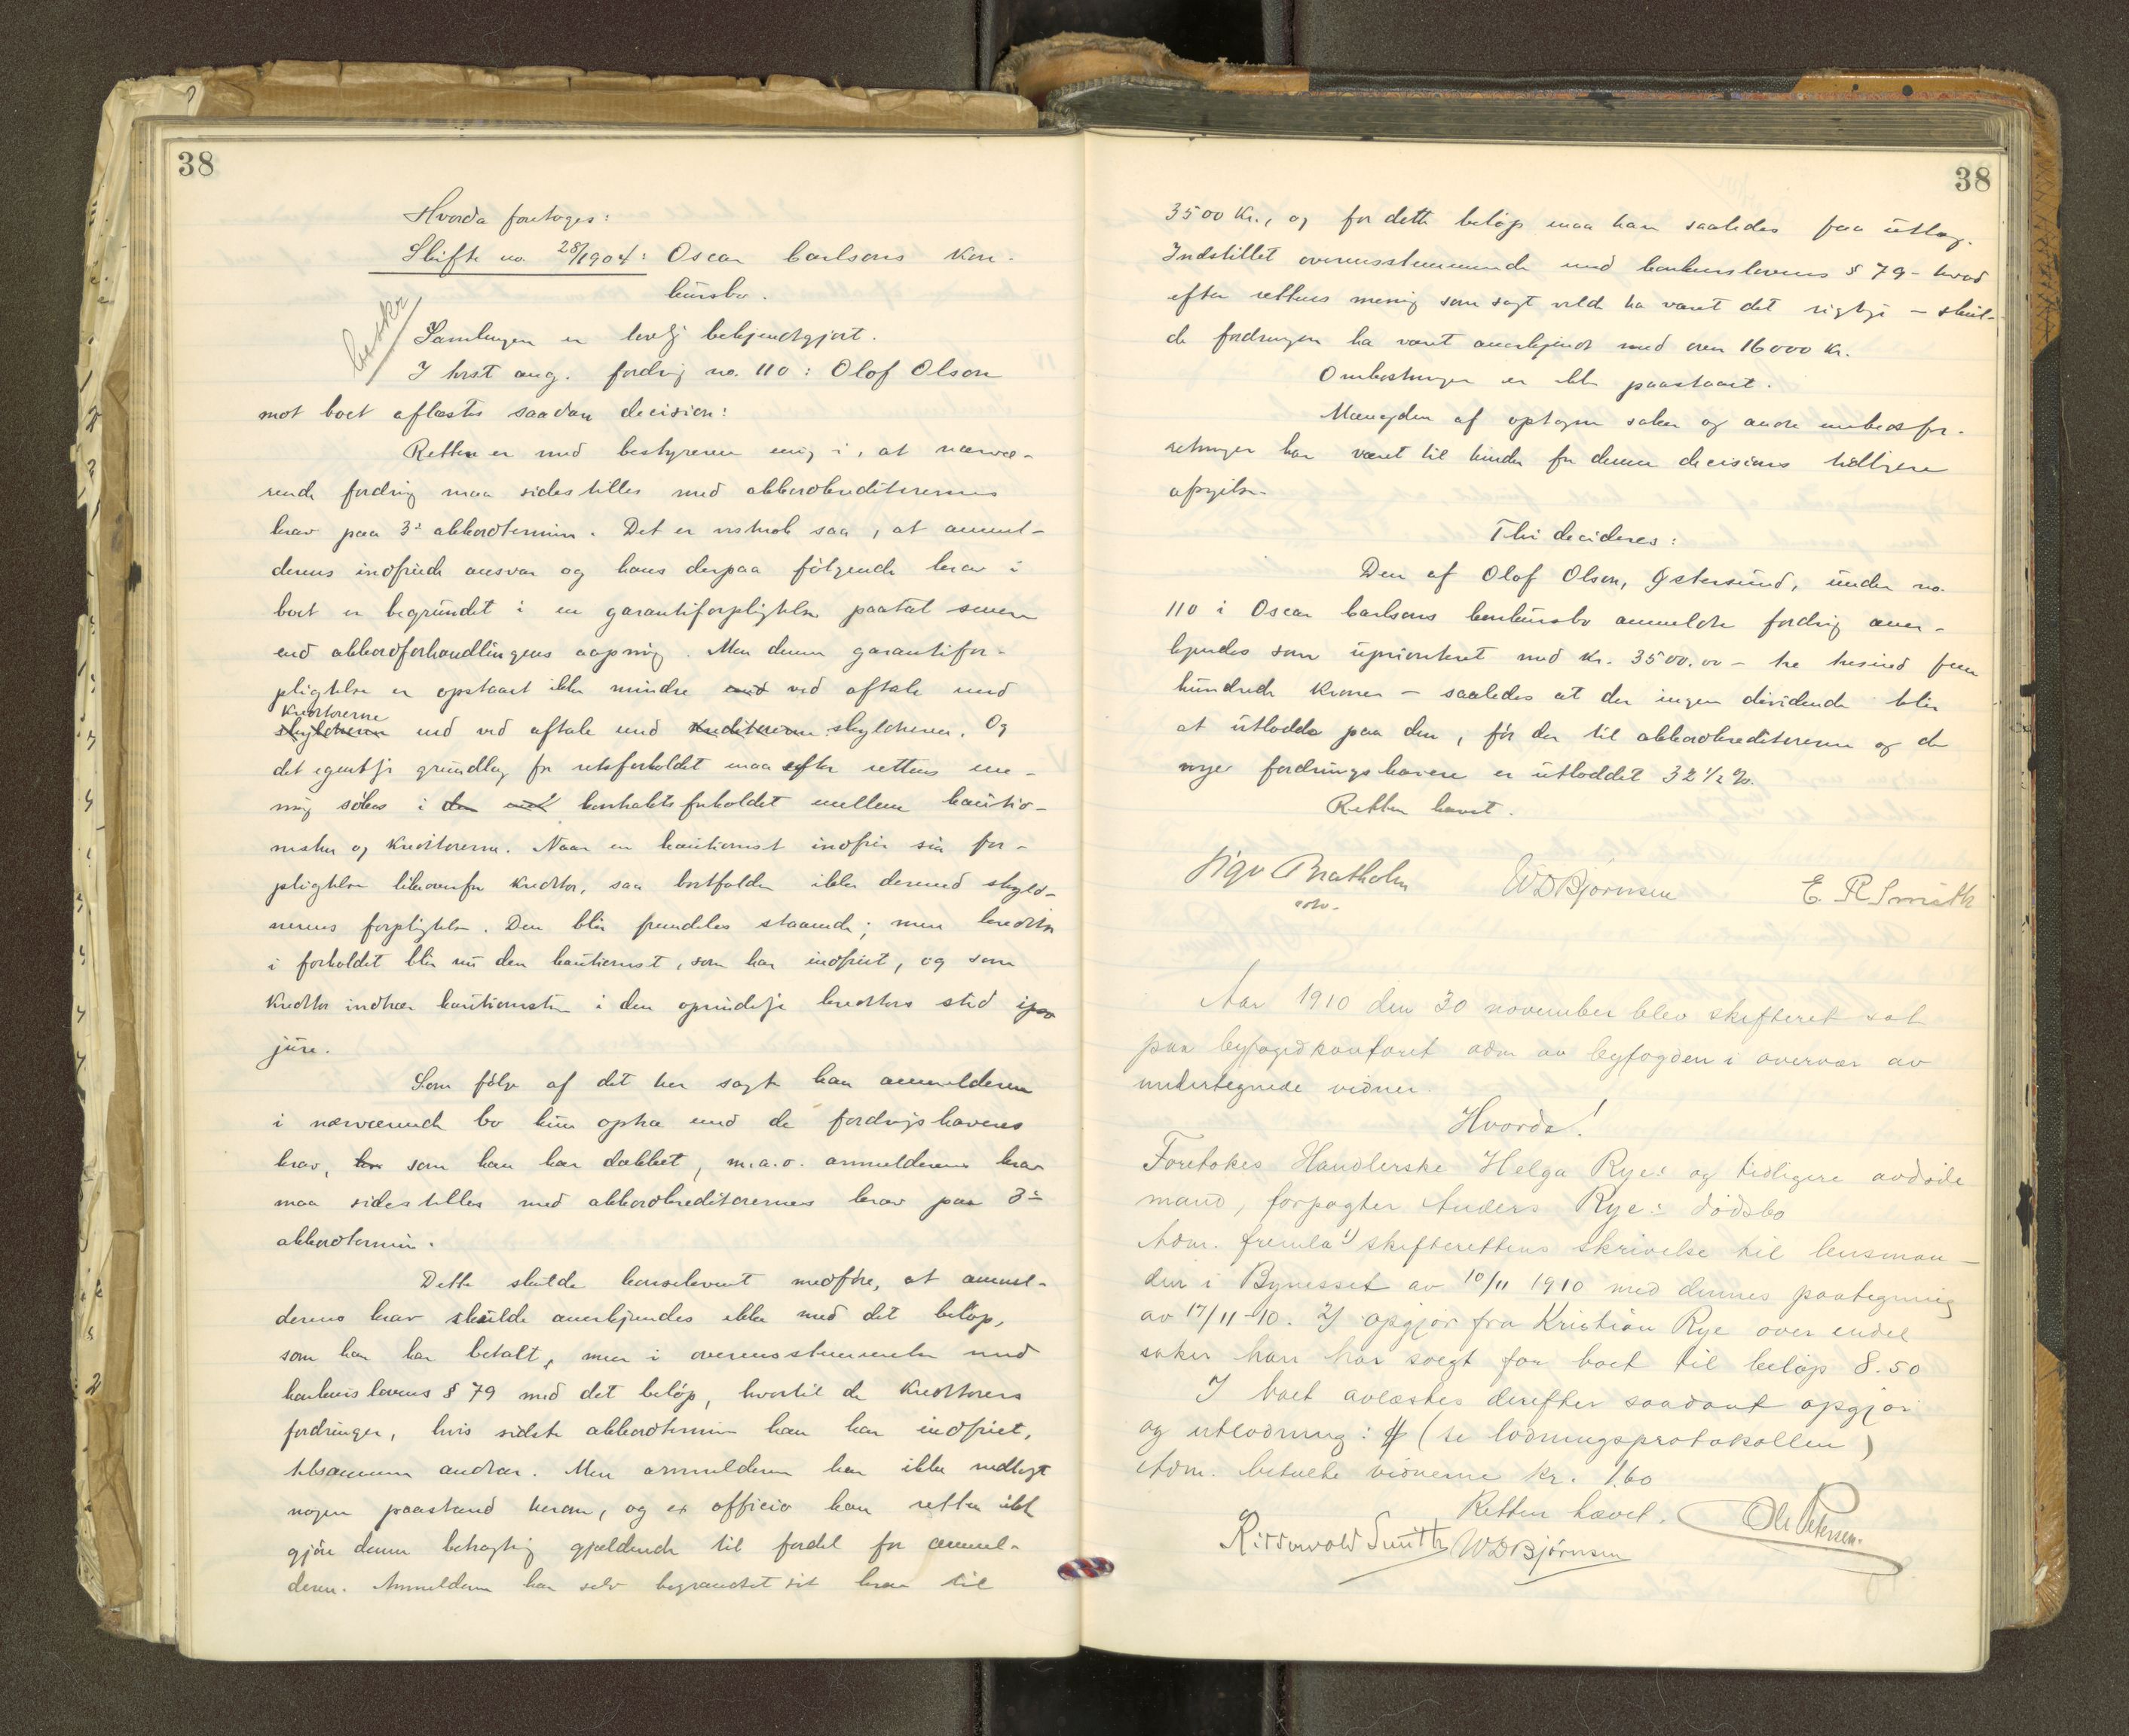 38
Hvorda foretoges:
Skifte no. 28/1904: Oscar Carlsons kon-
kursbo.
beskr
Samlingen er lovlig bekjendtgjort.
I tvist ang. fordring no. 110: Olof Olson
mot boet aflæstes saadan decision:
Retten er med bestyreren enig i, at nærvæ-
rende fordring maa sidestilles med akkordkreditorernes
krav paa 3die akkordtermin. Det er vistnok saa, at anmel-
derens indfriede ansvar og hans derpaa følgende krav i
boet er begrundet i en garantiforpligtelse paatat senere
end akkordforhandlingens aapning. Men denne garantifor-
pligtelse er opstaaet ikke mindre end ved aftale med
kreditorerne
skyldneren end ved aftale med kreditorerne skyldneren. Og
det egentlige grundlag for retsforholdet maa efter rettens me-
ning søkes i kontraktsforholdet mellem kautio-
nisten og kreditorerne. Naar en kautionist indfrir sin for-
pligtelse likeoverfor kreditor, saa bortfalder ikke dermed skyld-
nerens forpligtelse. Den blir fremdeles staaende; men kreditor
i forholdet blir nu den kautionist, som har indfriet, og som
kreditor indtrær kautionisten i den oprindelige kreditors sted ipso
jure.
Som følge af det her sagte kan anmelderen
i nærværende bo kun optræ med de fordringshaveres
krav, som han har dækket, m.a.o. anmelderens krav
maa sidestilles med akkordkreditorernes krav paa 3die
akkordtermin.
Dette skulde konsekvent medføre, at anmel-
derens krav skulde anerkjendes ikke med det beløp,
som han har betalt, men i overensstemmelse med
konkurslovens § 79 med det beløp, hvortil de kreditorers
fordringer, hvis sidste akkordtermin han har indfriet,
tilsammen andrar. Men anmelderen har ikke nedlagt
nogen paastand herom, og ex officio kan retten ikke
gjøre denne betragtning gjældende til fordel for anmel-
deren. Anmelderen har selv begrændset sit krav til
38
3500 Kr., og for dette beløp maa han saaledes faa utlæg.
Indstillet overensstemmende med konkurslovens § 79 - hvad
efter rettens mening som sagt vilde ha været det rigtige - skul-
de fordringen ha været anerkjendt med over 16000 Kr.
Omkostninger er ikke paastaaet.
Mængden af optagne saker og andre embedsfor-
retninger har været til hinder for denne decisions tidligere
afgivelse.
Thi decideres:
Den af Olof Olson, Østersund, under no.
110 i Oscar Carlsons konkursbo anmeldte fordring aner-
kjendes som uprioritert med kr. 3500.00 - tre tusind fem
hundrede kroner - saaledes at der ingen dividende blir
at utlodde paa den, før der til akkordkreditorerne og de
nye fordringshavere er utloddet 32 1/2 %.
Retten hævet.
Sigv Bratholm
cstu.
WDBjørnsen
E. R Smith
Aar 1910 den 30 november blev skifteret sat
paa byfogedkontoret adm av byfogden i overvær av
undertegnede vidner.
Hvorda!
Foretokes Handlerske Helga Rye's og tidligere avdøde
mand, forpagter Anders Rye's dødsbo
Adm. fremla 1) skifterettens skrivelse til lensman-
den i Bynesset av 10/11 1910 med dennes paategning
av 17/11-10. 2) opgjør fra Kristian Rye over endel
saker han har solgt for boet til beløp 8.50
I boet avlæstes derefter saadant opgjør
og utlodning: # (se lodningsprotokollen)
Adm. betalte vidnerne kr. 1.60
Retten hævet.
Ridderwold Smith WDBjørnsen
Ole Petersen.